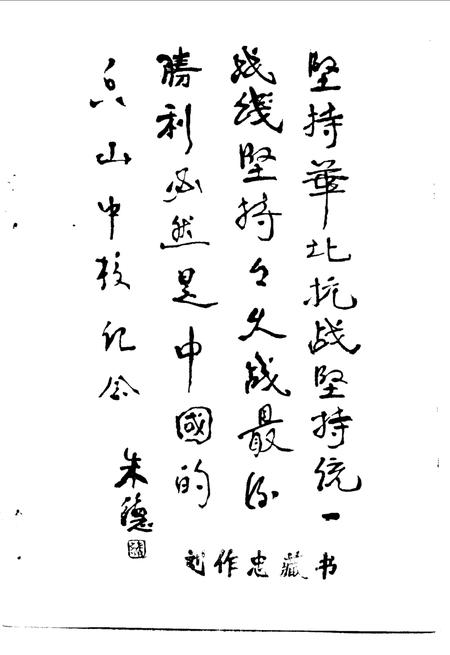 堅持華北抗战堅持統一
战綫堅持々久战最後
勝利必然是中國的
山中校纪念
朱德
刘作忠藏书